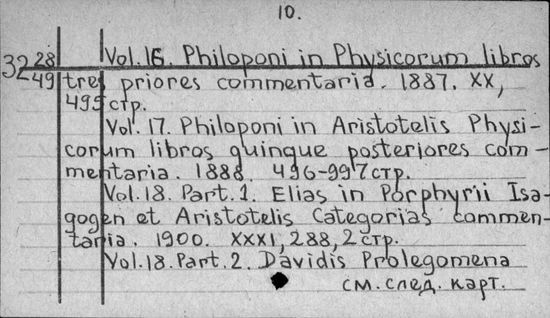 10.
32 28/49 Vol. 16. Philoponi in Physicorum libros
tres priores commentaria. 1887. XX,
495 стр.
Vol. 17. Philoponi in Aristotelis Physi-
corum libros quinque posteriores com-
mentaria. 1888. 496-997 стр.
Vol. 18. Part. 1. Elias in Porphyrii Isa-
gogen et Aristotelis Categorias commen-
taria. 1900. XXXI, 288, 2 стр.
Vol. 18. Part. 2. Davidis Prolegomena
см. след. карт.